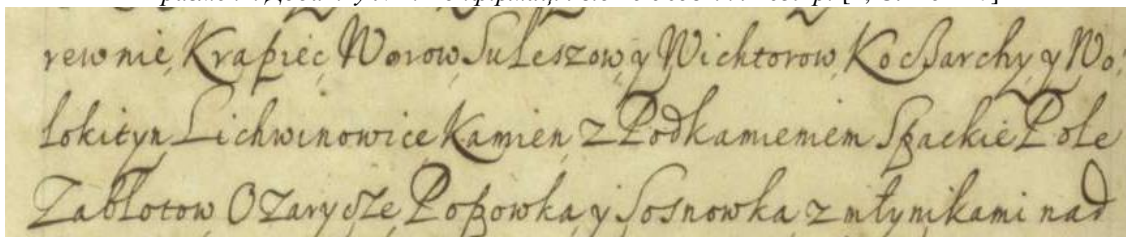 rewnie, Krapiec, Worow, Suleszow, y Wichtorow, Kocßarchy, y Wo,
lokityn Lichwinowice Kamien, z Podkamieniem Spackie Pole
Zabłotow Ozarycze Popowka, y Sosnowka z młynikami nad